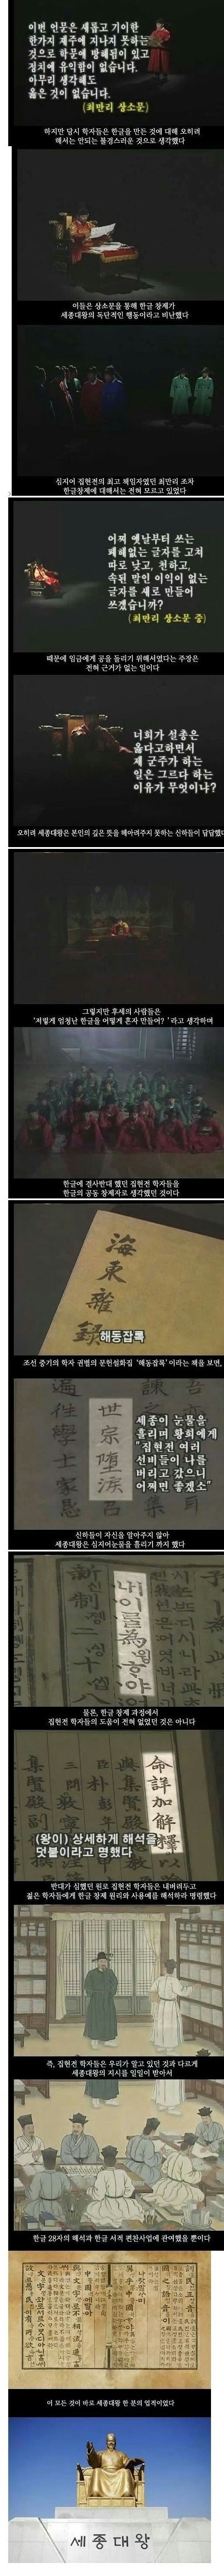 이번 언문은 새롭고 기이한
한가지 재주에 지나지 못하는
것으로 학문에 방해됨이 있고
정치에 유익함이 없습니다.
아무리 생각해도
옳은 것이 없습니다.
(최만리 상소문)
하지만 당시 학자들은 한글을 만든 것에 대해 오히려
해서는 안되는 불경스러운 것으로 생각했다
이들은 상소문을 통해 한글 창제가
세종대왕의 독단적인 행동이라고 비난했다
심지어 집현전의 최고 책임자였던 최만리 조차
한글창제에 대해서는 전혀 모르고 있었다
어찌 옛날부터 쓰는
폐해없는 글자를 고쳐
따로 낮고, 천하고,
속된 말인 이익이 없는
글자를 새로 만들어
쓰겠습니까?
(최만리 상소문 중)
때문에 임금에게 공을 돌리기 위해서였다는 주장은
전혀 근거가 없는 일이다
너희가 설총은
옳다고하면서
제 군주가 하는
일은 그르다 하는
이유가 무엇이냐?
오히려 세종대왕은 본인의 깊은 뜻을 헤아려주지 못하는 신하들이 답답했다
그렇지만 후세의 사람들은
'저렇게 엄청난 한글을 어떻게 혼자 만들어? ' 라고 생각하며
한글에 결사반대 했던 집현전 학자들을
한글의 공동 창제자로 생각했던 것이다
海東雜錄
해동잡록
조선 중기의 학자 권별의 문헌설화집 '해동잡록' 이라는 책을 보면,
世宗墮淚
세종이 눈물을
흘리며 황희에게
"집현전 여러
선비들이 나를
버리고 갔으니
어쩌면 좋겠소"
신하들이 자신을 알아주지 않아
세종대왕은 심지어눈물을 흘리기 까지 했다
내이를為
물론, 한글 창제 과정에서
집현전 학자들의 도움이 전혀 없었던 것은 아니다
命詳加解釋
(왕이) 상세하게 해석을
덧붙이라고 명했다
반대가 심했던 원로 집현전 학자들은 내버려두고
젊은 학자들에게 한글 창제 원리와 사용예를 해석하라 명령했다
즉, 집현전 학자들은 우리가 알고 있던 것과 다르게
세종대왕의 지시를 일일이 받아서
한글 28자의 해석과 한글 서적 편찬사업에 관여했을 뿐이다
이 모든 것이 바로 세종대왕 한 분의 업적이었다
세종대왕